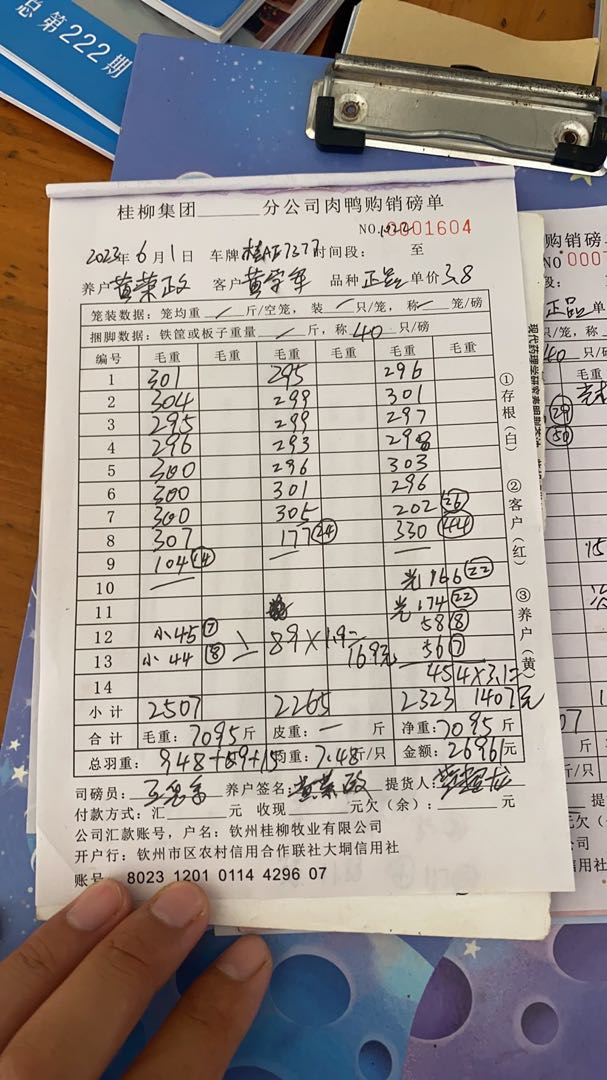 总第222期
桂柳集团______分公司肉鸭购销磅单
NO. 0001604
2023年6月1日 车牌 桂AF7277 时间段: 至
养户 黄荣政 客户 品种 正品 单价 3.8
笼装数据: 笼均重 / 斤/空笼, 装 / 只/笼, 称 / 笼/磅
捆脚数据: 铁筐或板子重量 / 斤, 称 40 只/磅
编号 毛重 毛重 毛重 毛重 毛重 毛重
1 301 295 296
2 304 299 301
3 295 299 297
4 296 293 298
5 300 296 303
6 300 301 296
7 300 305 202 (26)
8 307 177 (24) 330 (44)
9 104 (14) — —
10 — 光166 (22)
11 光174 (22)
12 小45 (7) 89×1.9= 58 (8)
13 小44 (8) 169元 56 (7)
14 454×3.1=
小计 2507 2265 2323 1407元
合计 毛重: 7095斤 皮重: — 斤 净重: 7095斤
总羽重: 948+59+15 均重: 7.48斤/只 金额: 26961元
司磅员: 养户签名: 黄荣政 提货人:
付款方式: 汇____元 收现____元 欠(余): ____元
公司汇款账号, 户名: 钦州桂柳牧业有限公司
开户行: 钦州市区农村信用合作联社大垌信用社
账号: 8023 1201 0114 4296 07
①存根(白) ②客户(红) ③养户(黄)
购销磅单
NO 000
正品 单
40 只/磅
毛重
(29)
(50)